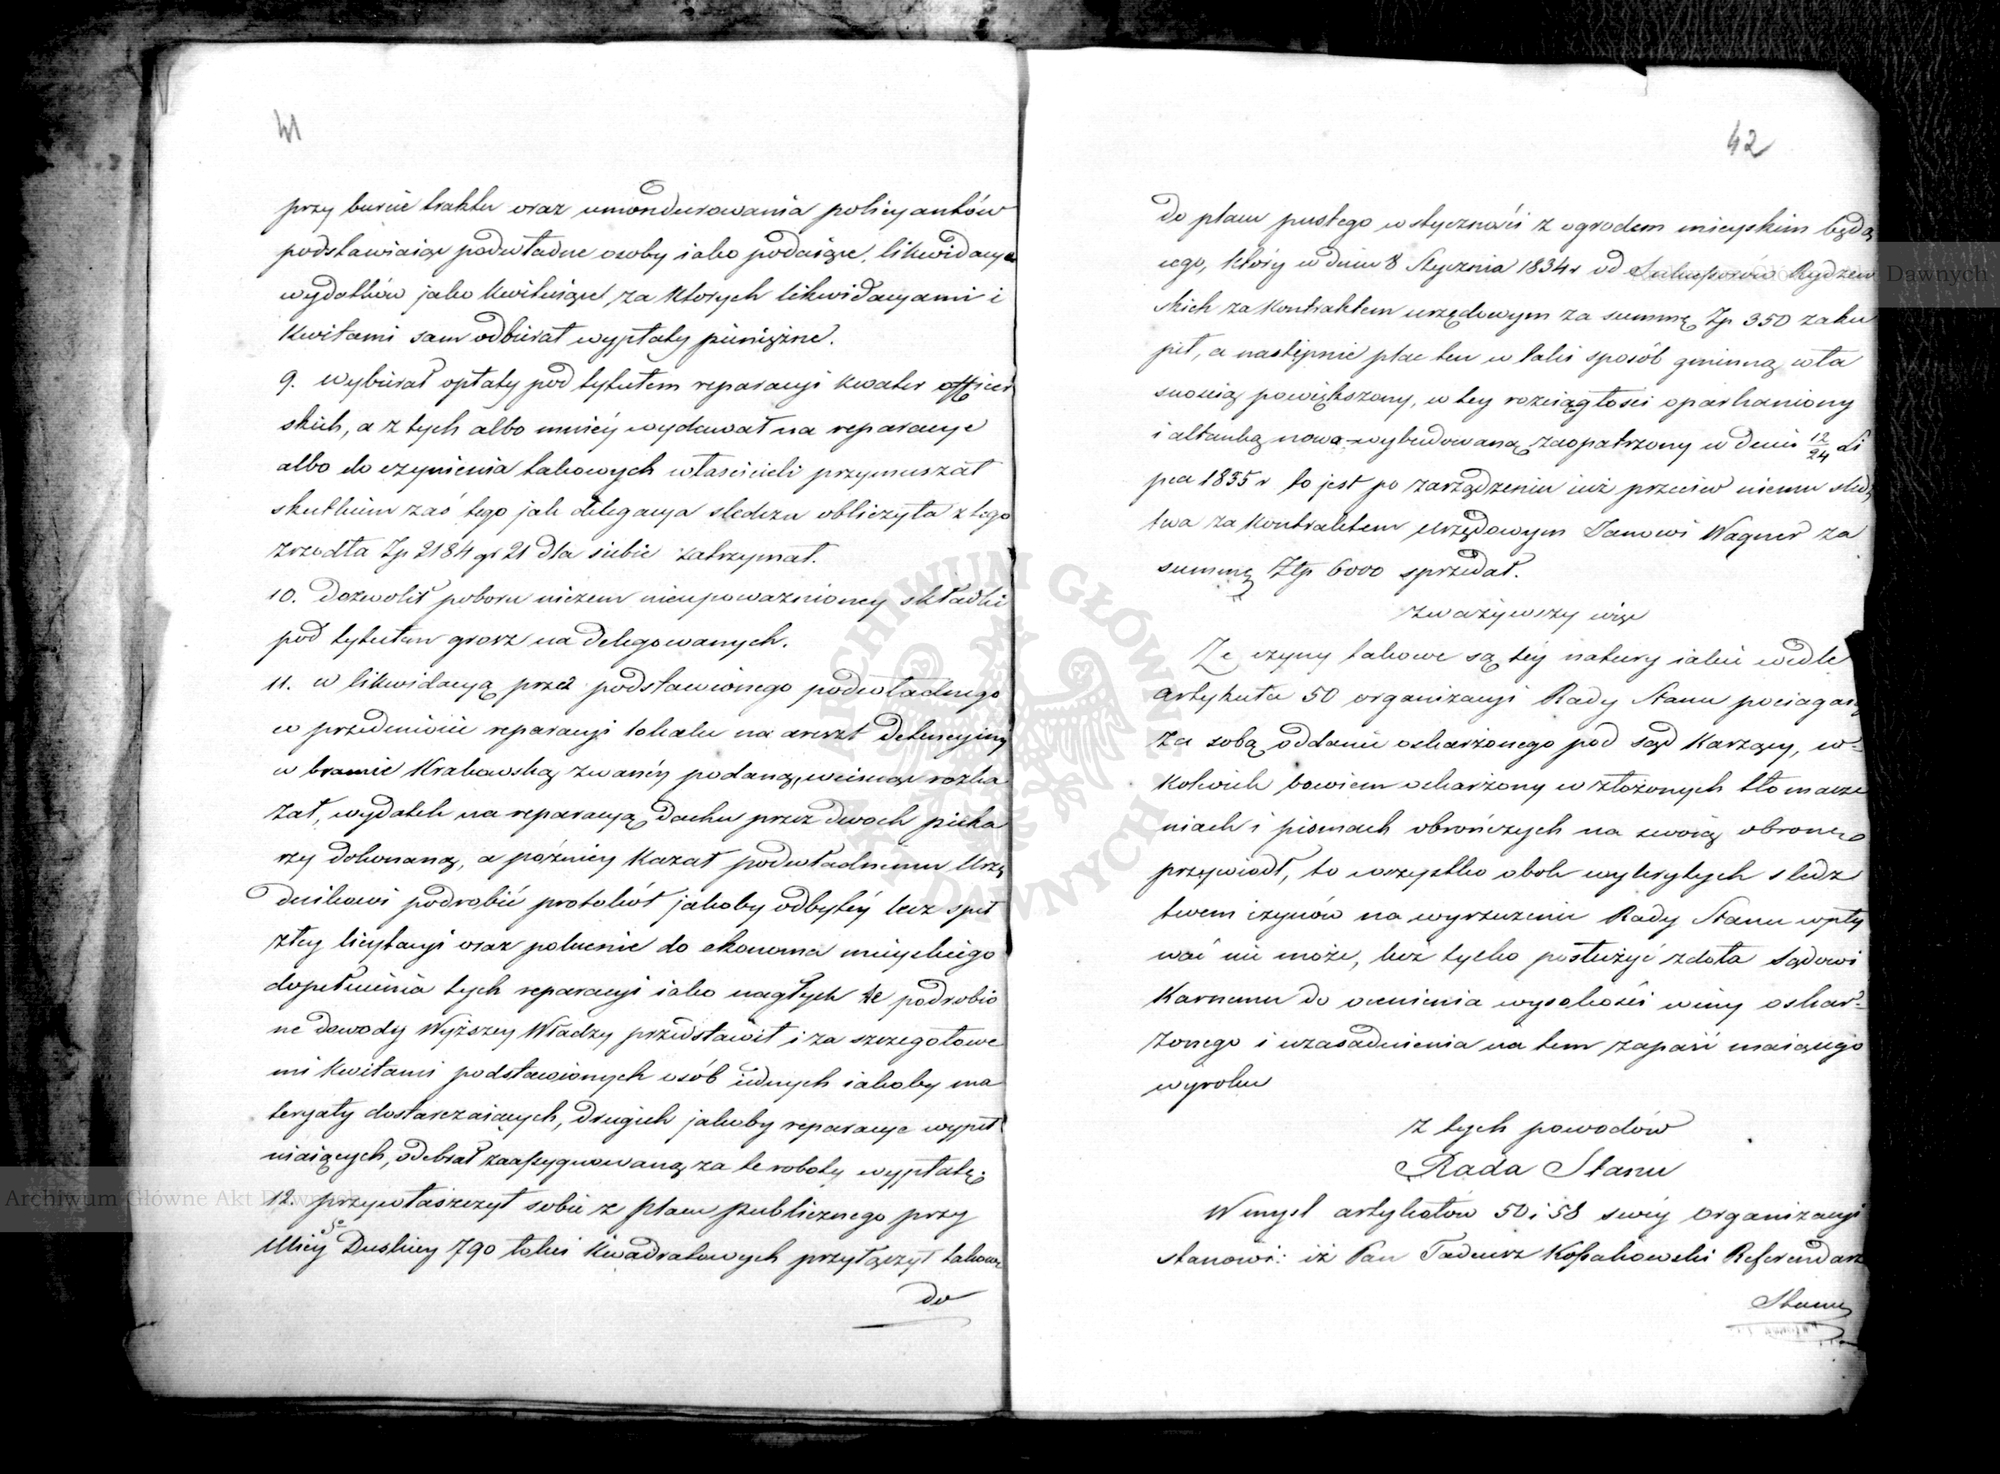 41
przy burcie traktu oraz umondurowania policyantów
podstawiaiąc podwładne osoby iako podaiące, likwidacye
wydatków jako kwituiące, za których likwidacyami i
kwitami sam odbierał wypłaty pieniężne.
9. wybierał opłaty pod tytułem reparacyi kwater officer
skich, a z tych albo mniéy wydawał na reparacye
albo do czynienia takowych właścicieli przymuszał
skutkiem zaś tego jak delegacya śledcza obliczyła z tego
zrzodła Zp 2184 gr 21 dla siebie zatrzymał.
10. Dozwolił poboru niczem nieupoważnioney składki
pod tytułem grosz na delegowanych.
11. w likwidacyą przez podstawionego podwładnego
w przedmiocie reparacyi lokalu na areszt detencyjny
w bramie Krakowską zwanéy podaną, wciągnąć rozka
zał, wydatek na reparacyą dachu przez dwoch pieka
rzy dokonaną, a późniey kazał podwładnemu Urzę
dnikowi podrobić protokół jakoby odbytéy lecz speł
złey licytacyi oraz polecenie do ekonoma mieyskiego
dopełnienia tych reparacyi iako nagłych te podrobio
ne dowody Wyższey Władzy przedstawił i za szczegółowe
mi kwitami podstawionych osób iednych iakoby ma
teryały dostarczaiących, drugich jakoby reparacye wypeł
niaiących, odebrał zaassygnowaną za te roboty wypłatę.
12. przywłaszczył sobie z placu publicznego przy
Ulicy Duskiey 790 łokci kwadratowych przyłączył takowe
do
42
do placu pustego w styczności z ogrodem mieyskim będą
cego, który w dniu 8 Stycznia 1834 r od Sukcessorów Rydzew
skich za kontraktem urzędowym za summę Zp 350 zaku
pił, a następnie plac ten w taki sposób gminną wła
snością powiększony, w tey rozciągłości oparkaniony
i altanką nowo-wybudowaną zaopatrzony w dniu 12/24 Li
pca 1835 r to jest po zarządzeniu iuż przeciw niemu śledz
twa za kontraktem Urzędowym Janowi Wagner za
summę Złp 6000 sprzedał.
Zważywszy więc
Że czyny takowe są téy natury iakie wedle
artykułu 50 organizacyi Rady Stanu pociągaią
za sobą oddanie oskarżonego pod sąd karzący, w-
kolwiek bowiem oskarżony w złożonych tłomacze
niach i pismach obrończych na swoią obronę
przywiodł, to wszystko obok wykrytych śledz
twem czynów na wyrzeczenie Rady Stanu wpły
wać nie może, lecz tylko posłużyć zdoła Sądowi
Karnemu do ocenienia wysokości winy oskar-
żonego i uzasadnienia na tem zapaść maiącego
wyroku
Z tych powodów
Rada Stanu
W myśl artykułów 50 i 58 swéy Organizacyi
stanowi: iż Pan Tadeusz Kossakowski Referendarz
Stanu
Archiwum Główne Akt Dawnych
ARCHIWUM GŁÓWNE AKT DAWNYCH